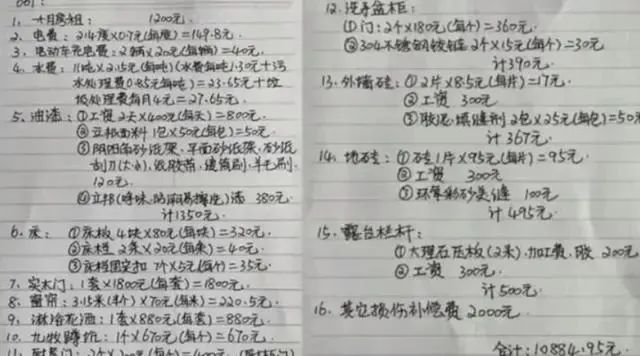 601:
1. 十月房租: 1200元.
2. 电费: 214度×0.7元(每度)=149.8元.
3. 电动车充电费: 2辆×20元(每辆)=40元.
4. 水费: 11吨×2.15元(每吨)(水费每吨1.30元+污
水处理费0.85元每吨)=23.65元+垃
圾处理费每月4元=27.65元.
5. 油漆: ①工资 2天×400元(每天)=800元.
②立邦面料 1包×50元(每包)=50元.
③阴阳角砂纸架, 平面砂纸架, 砂纸
刮刀(大小), 纸胶带, 滚筒刷, 羊毛刷.
120元.
④立邦(净味,防霉易擦洗)漆 380元.
计1350元.
6. 床: ①床板 4块×80元(每块)=320元.
②床梃 2条×20元(每条)=40元.
③床梃固定扣 7个×5元(每个)=35元.
7. 实木门: 1套×1800元(每套)=1800元.
8. 窗帘: 3.15米(半个)×70元(每米)=220.5元.
9. 淋浴花洒: 1套×880元(每套)=880元.
10. 九牧蹲坑: 1个×670元(每个)=670元.
12. 洗手盆柜:
①门: 2个×180元(每个)=360元.
②304不锈钢铰链 2个×15元(每个)=30元
计390元.
13. 外墙砖: ①2片×8.5元(每片)=17元.
②工资 300元.
③胶泥.填缝剂 2包×25元(每包)=50元
计367元.
14. 地砖: ①砖1片×95元(每片)=95元.
②工资 300元
③环氧彩砂美缝 100元
计495元.
15. 露台栏杆:
①大理石压板(2米),加工费,胶 200元
②工资 300元.
计500元.
16. 其它损伤补偿费 2000元.
合计: 10884.95元.